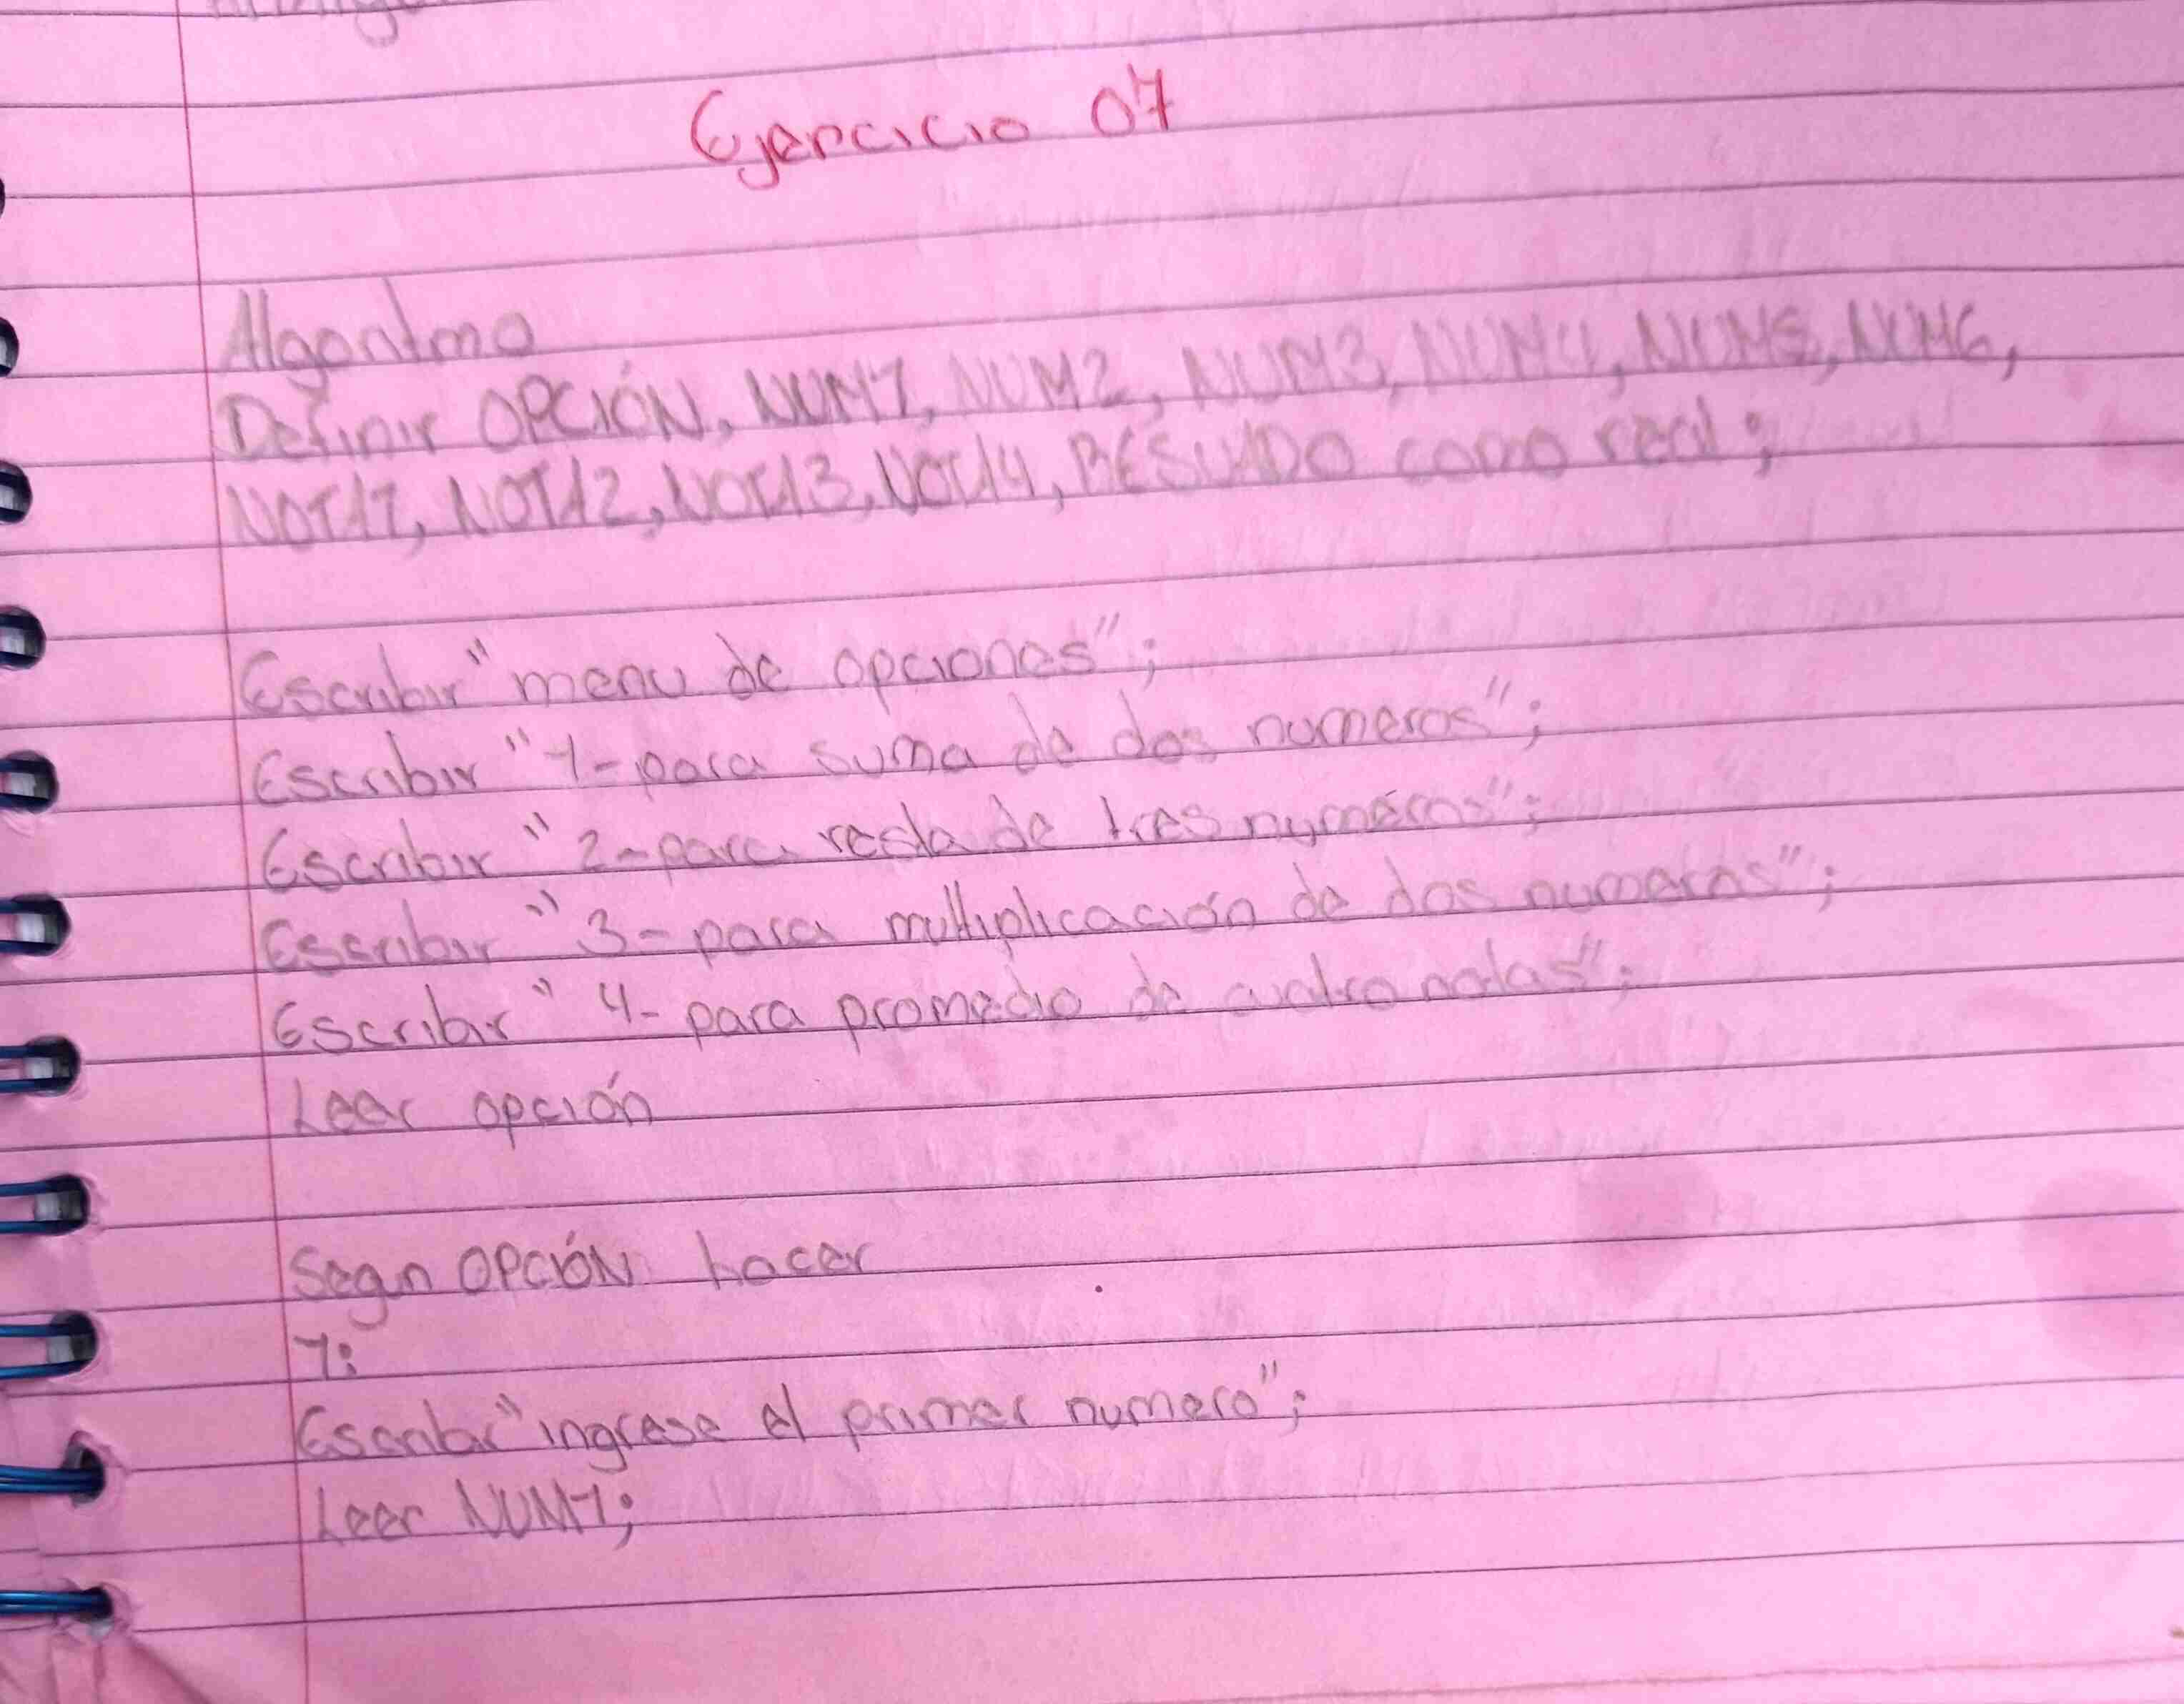 Ejercicio 07
Algoritmo
Definir OPCIÓN, NUM1, NUM2, NUM3, NUM4, NUM5, NUM6,
NOTA1, NOTA2, NOTA3, NOTA4, RESUADO como real;
Escribir "menu de opciones";
Escribir "1-para suma de dos numeros";
Escribir "2-para resta de tres numéros";
Escribir "3-para multiplicación de dos numeros";
Escribir "4-para promedio de cuatro notas";
Leer opción
Segun OPCIÓN hacer
1:
Escribir "ingrese el primer numero";
Leer NUM1;